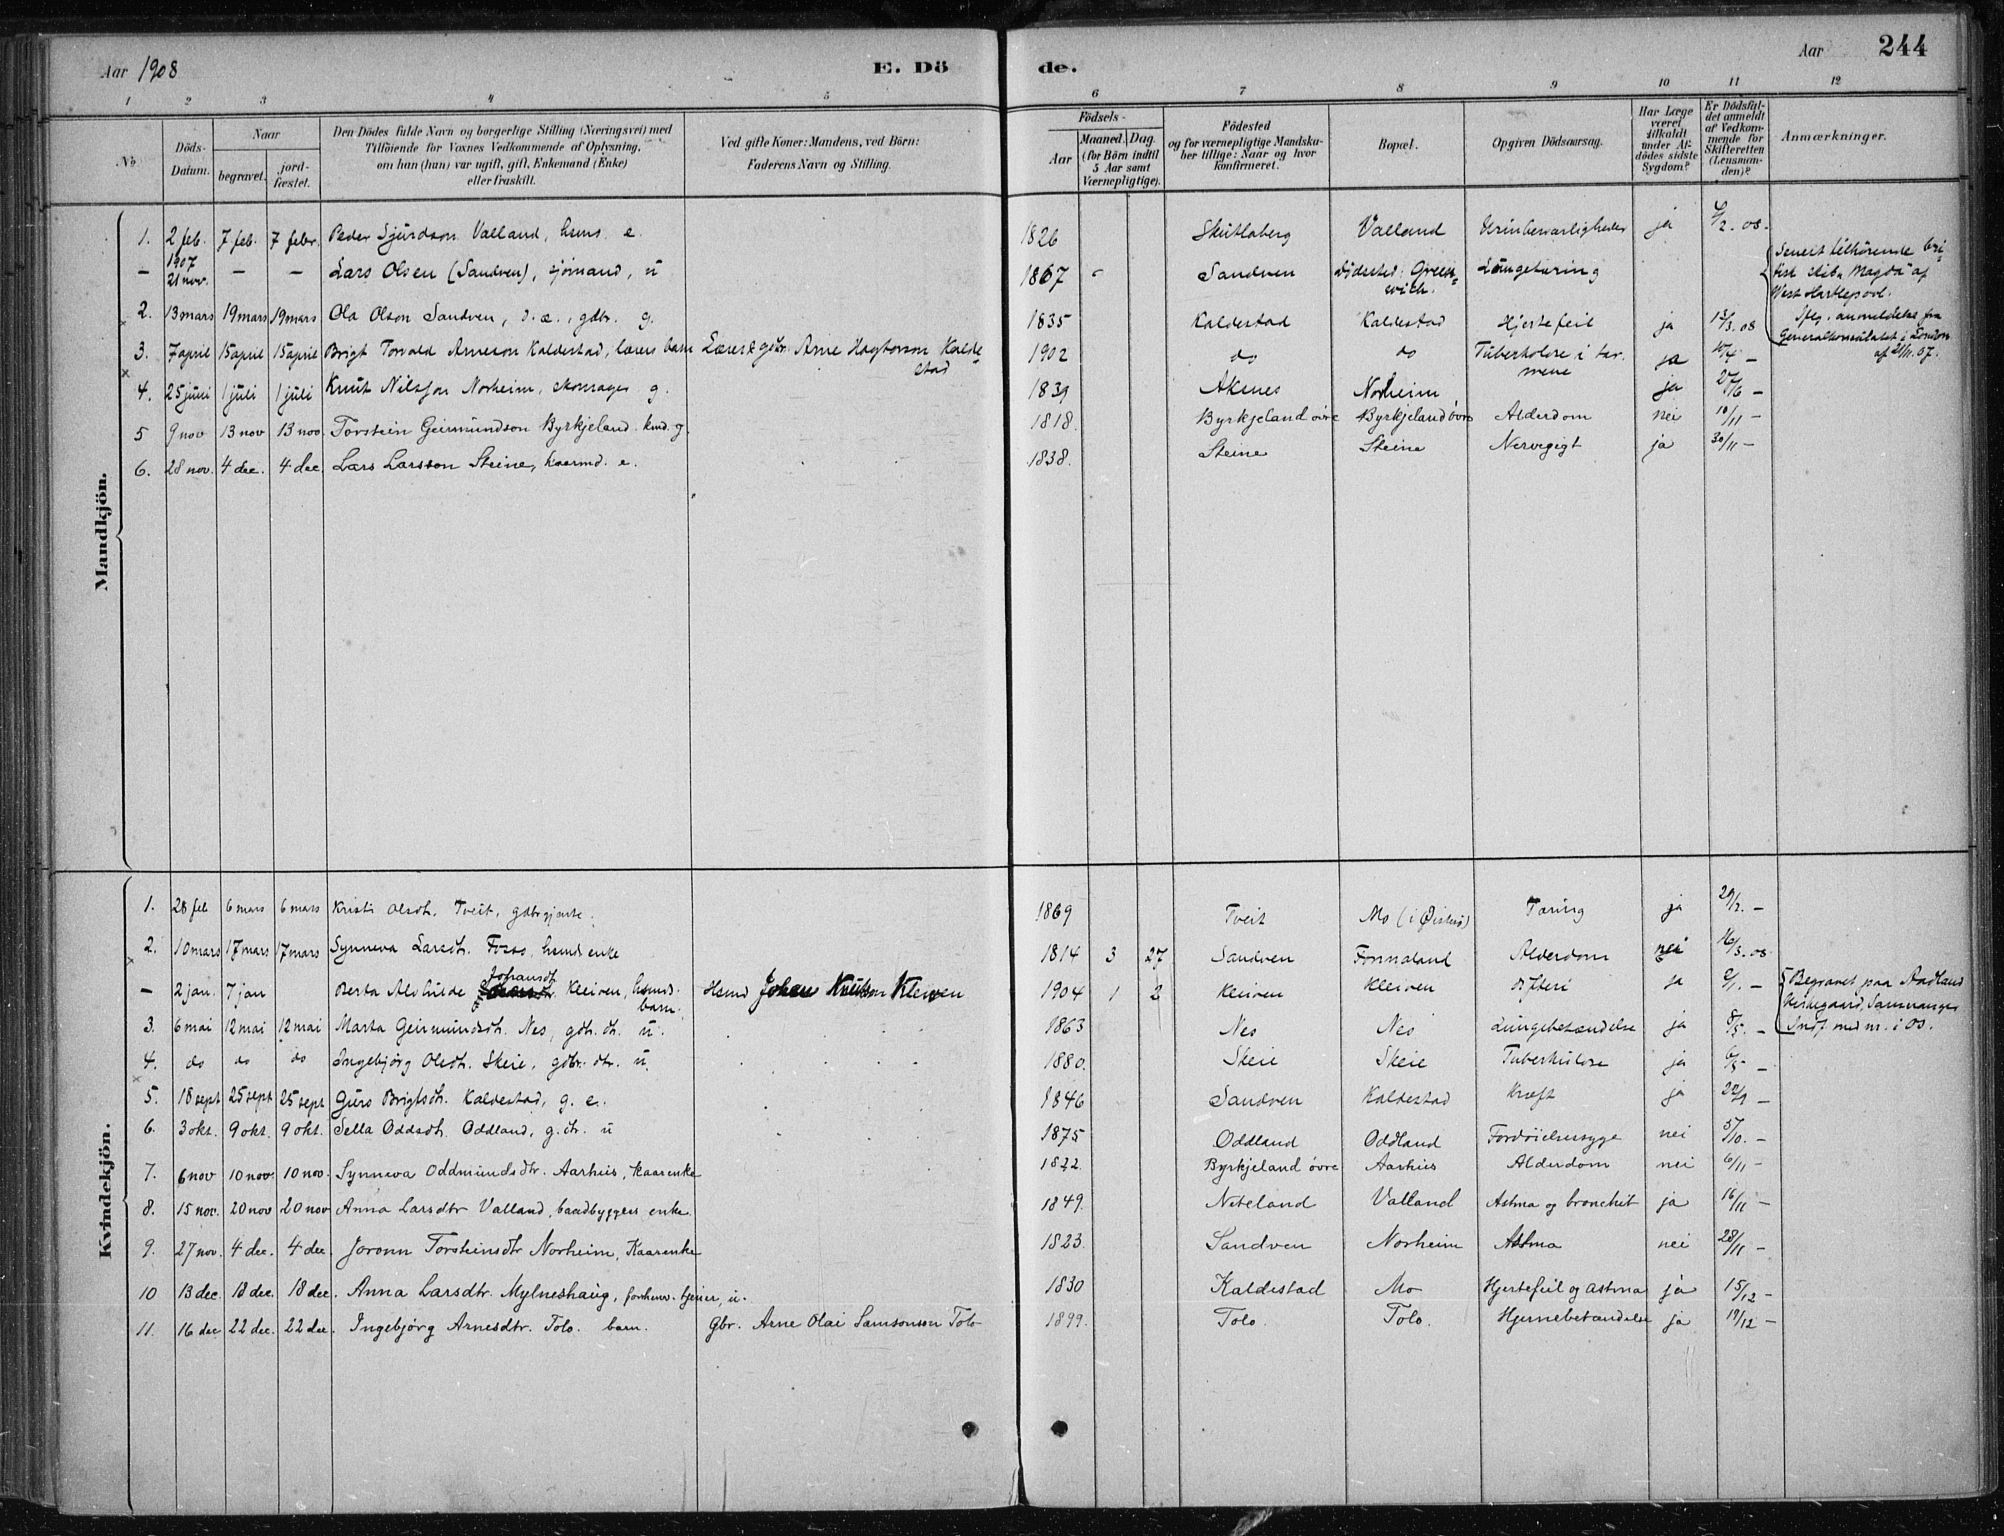 Aar 1908
E. Dö
de.
Aar
244
1 2 3 4 5 6 7 8 9 10 11 12
No
Döds-Datum.
Naar
begravet.
jord-fæstet.
Den Dödes fulde Navn og borgerlige Stilling (Næringsvei) med
Tilföiende for Voxnes Vedkommende af Oplysning,
om han (hun) var ugift, gift, Enkemand (Enke)
eller fraskilt.
Ved gifte Koner: Mandens, ved Börn:
Faderens Navn og Stilling.
Födsels-
Aar
Maaned. Dag.
(for Börn indtil
5 Aar samt
Værnepligtige).
Födested
og for værnepligtige Mandska-
ber tillige: Naar og hvor
konfirmeret.
Bopæl.
Opgiven Dödsaarsag.
Har Læge
været
tilkaldt
under Af-
dödes sidste
Sygdom?
Er Dödsfal-
det anmeldt
af Vedkom-
mende for
Skifteretten
(Lensman-
den)?
Anmærkninger.
Mandkjön.
1. 2 feb. 7 feb. 7 febr. Peder Sjurdson Valland, husm. e. 1826 Skutlaberg Valland Urinbesværligheder ja 6/2. 08.
— 1907 21 nov. — — Lars Olsen (Sandven), sjömand, u 1867 Sandven Dödssted: Green-wich. Lungetæring
Senest tilhörende bri-
tisk skib "Magda" af
West Hartlepool.
Iflg. anmeldelse fra
Generalkonsulatet i London
af 21/11. 07.
2. 13 mars 19 mars 19 mars Ola Olson Sandven, gdbr. g. 1835 Kaldestad Kaldestad Hjertefeil ja 13/3. 08
3. 7 april 15 april 15 april Brigt Torvald Arneson Kaldestad, lærers barn Lærer & gdbr. Arne Hagtorson Kalde-stad 1902 do do Tuberkulose i tar-mene ja 10/4 —
4. 25 juni 1 juli 1 juli Knut Nilsson Norheim, skomager g. 1839 Aksnes Norheim ja 27/6 —
5 9 nov 13 nov 13 nov. Torstein Geirmundson Byrkjeland. g. 1818. Byrkjeland övre Byrkjeland övre Alderdom nei 10/11 —
6. 28 nov. 4 dec. 4 dec. Lars Larsson Steine, kaarmd. e. 1838. Steine Steine Nervegigt ja 30/11 —
Kvindekjön.
1. 28 feb 6 mars 6 mars Kristi Olsdtr. Tveit, gdbrgjente. 1869 Tveit Mo (i Øistesö) Tæring ja 29/2. —
2. 10 mars 17 mars 17 mars Synneva Larsdtr. Foss, husmd enke 1814 3 27 Sandven Fonnaland Alderdom nei 16/3. 08
— 2 jan. 7 jan Berta Alvhilde Johansdt. Kleiven, husmd. barn. Husmd Johan Knutson Kleiven 1904 1 2 Kleiven Kleiven Difteri ja 2/1. —
Begravet paa Aadland
kirkegaard, Samnanger
Indf. med nr. i 08.
3. 6 mai 12 mai 12 mai Marta Geirmundsdtr. Nes, gdb. dtr. u. 1863 Nes Nes Lungebetændelse ja 8/5. —
4. do do do Ingebjörg Olsdtr. Skeie, gdbr. dtr. u. 1880. Skeie Skeie Tuberkulose ja 6/5 —
5. 18 sept 25 sept 25 sept Guro Brigtsdtr. Kaldestad, g. e. 1846 Sandven Kaldestad Kræft ja 22/9 —
6. 3 okt. 9 okt. 9 okt. Sella Oddsdtr. Oddland, g. dtr. u 1875 Oddland Oddland Fordöielsessyge nei 5/10. —
7. 6 nov 10 nov. 10 nov. Synneva Oddmundsdtr. Aarhus, kaarenke 1822. Byrkjeland övre Aarhus Alderdom nei 6/11 —
8. 15 nov. 20 nov 20 nov Anna Larsdtr Valland, baadbyggers enke 1849. Neteland Valland Astma og bronchit ja 16/11 —
9. 27 nov. 4 dec. 4 dec. Joronn Torsteinsdtr Norheim, Kaarenke 1823. Sandven Norheim Astma nei 28/11 —
10 13 dec. 18 dec. 18 dec. Anna Larsdtr. Mylneshaug, forhenv. tjener, u. 1830 Kaldestad Mo Hjertefeil og Astma ja 15/12 —
11. 16 dec 22 dec. 22 dec. Ingebjörg Arnesdtr. Tolo. barn. Gbr. Arne Olai Samsonson Tolo 1899. Tolo. Tolo. Hjernebetændelse ja 19/12 —